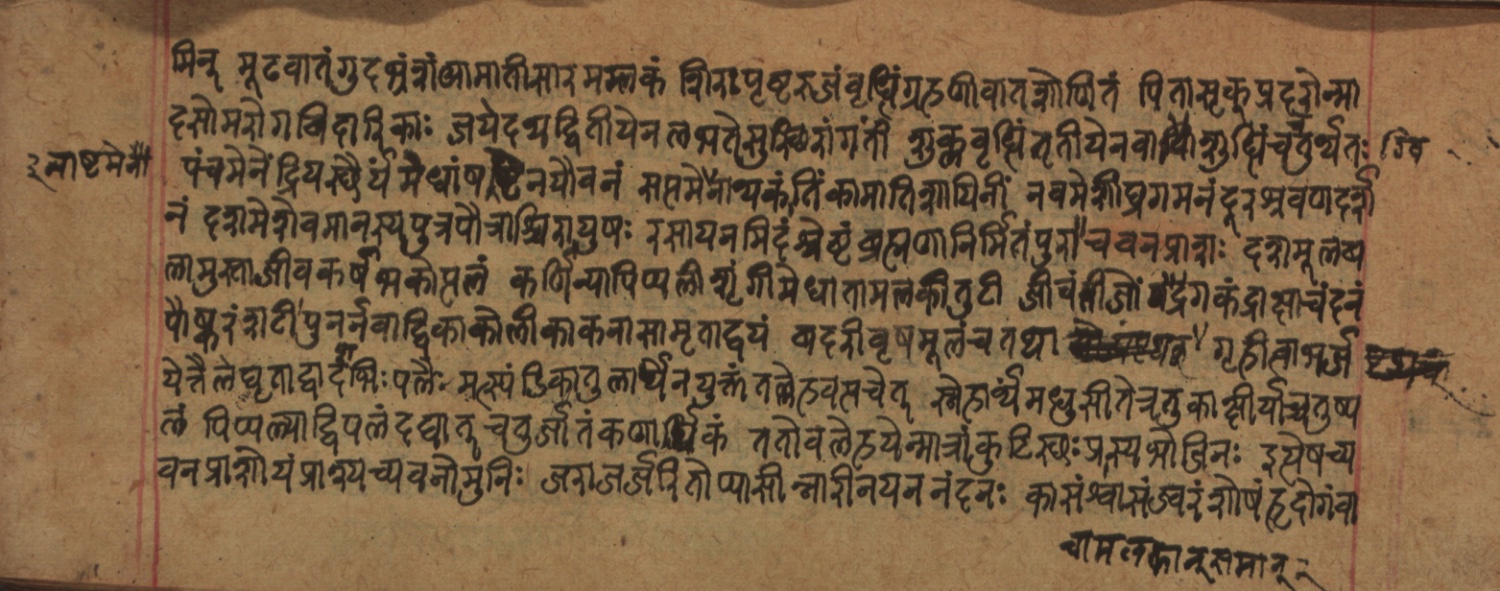 मिनु मूढवातं गुदभ्रंशं आमातीसारमम्लकं शिरःपृष्टरुजं वृद्धिं ग्रहणी वातशोणितं पितासृक् प्रदरोन्मा
दसोमरोगविदारिकाः जयेदथ द्वितीयेन लभते सुस्थिरां गतीं शुक्रवृद्धिं तृतीयेन वाचो शुद्धिं चतुर्थतः
नाष्टमेनो
पंचमेनेंद्रियस्थैर्यं मेधां षष्टेन यौवनं सप्तमेनाथ्यकंतिं कामातिशायिनीं नवमे शीघ्रगमनं दूरश्रवणदर्श
नं दशमे शेवमानस्य पुत्रपौत्राश्चिरायुषः रसायनमिदं श्रेष्टं ब्रह्मणा निर्मितं पुरा च वनप्राशः दशमूलव्य
लामुस्ताजीवकर्षभकोत्पलं कर्णिन्या पिप्पली शृंगी मेधा तामलकी तुटी जीवंती द्राक्षा चंदनं
पौष्करं शटी पुनर्नवाद्विकाकोलीकाकनासामृताद्वयं वदरीवृषमूलं च तथा गृहीत्वा भर्ज
येत्तैलघृताद्वादशभिः पलैः मत्स्यंडिकातुलार्धेन युक्तं तल्लेहवत्पचेत् स्नेहार्थं मधु सीते तु काक्षीर्याच्चतुष्प
लं पिप्पल्याद्विपलं दद्यात् चतुर्जातं कणार्धिकं ततोवलेहयेन्मात्रां कुटिस्थः पथ्यभोजिनः इत्येष च्य
वनप्राशोयं प्राश्यच्यवनोमुनिः जराजर्जरितोप्यासीन्नारीनयननंदनः कासं श्वासं ज्वरं शोषं हृद्रोगं वा
चामलकान् समान्